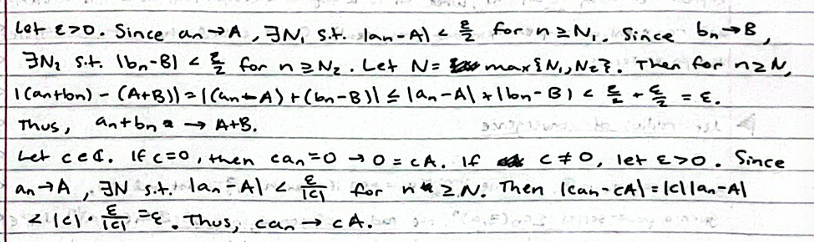 Let ε>0. Since an→A, ∃N₁ s.t. |an-A| < ε/2 for n≥N₁. Since bn→B,
∃N₂ s.t. |bn-B| < ε/2 for n≥N₂. Let N= max{N₁,N₂}. Then for n≥N,
|(an+bn) - (A+B)| = |(an-A) + (bn-B)| ≤ |an-A| + |bn-B| < ε/2 + ε/2 = ε.
Thus, an+bn → A+B.
Let c∈ℂ. If c=0, then can=0 → 0 = cA. If c≠0, let ε>0. Since
an→A, ∃N s.t. |an-A| < ε/|c| for n≥N. Then |can-cA| = |c||an-A|
< |c|·ε/|c| = ε. Thus, can → cA.